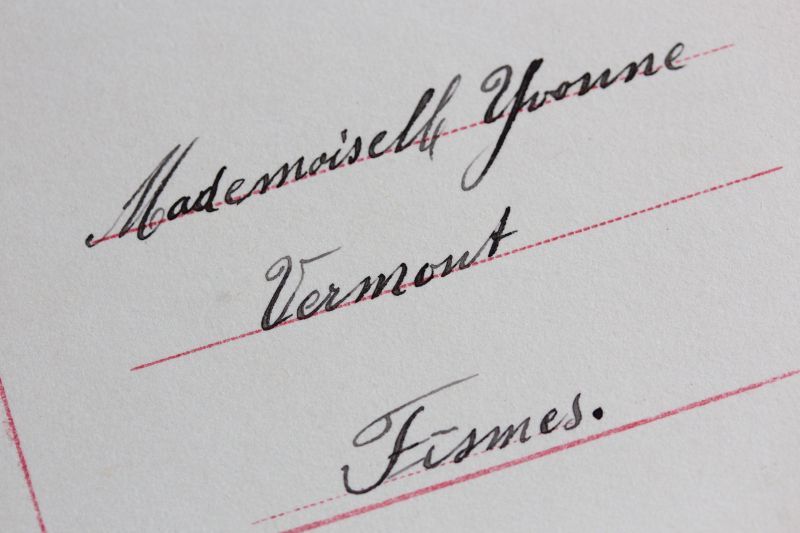 Mademoiselle Yvonne
Vermont
Fismes.